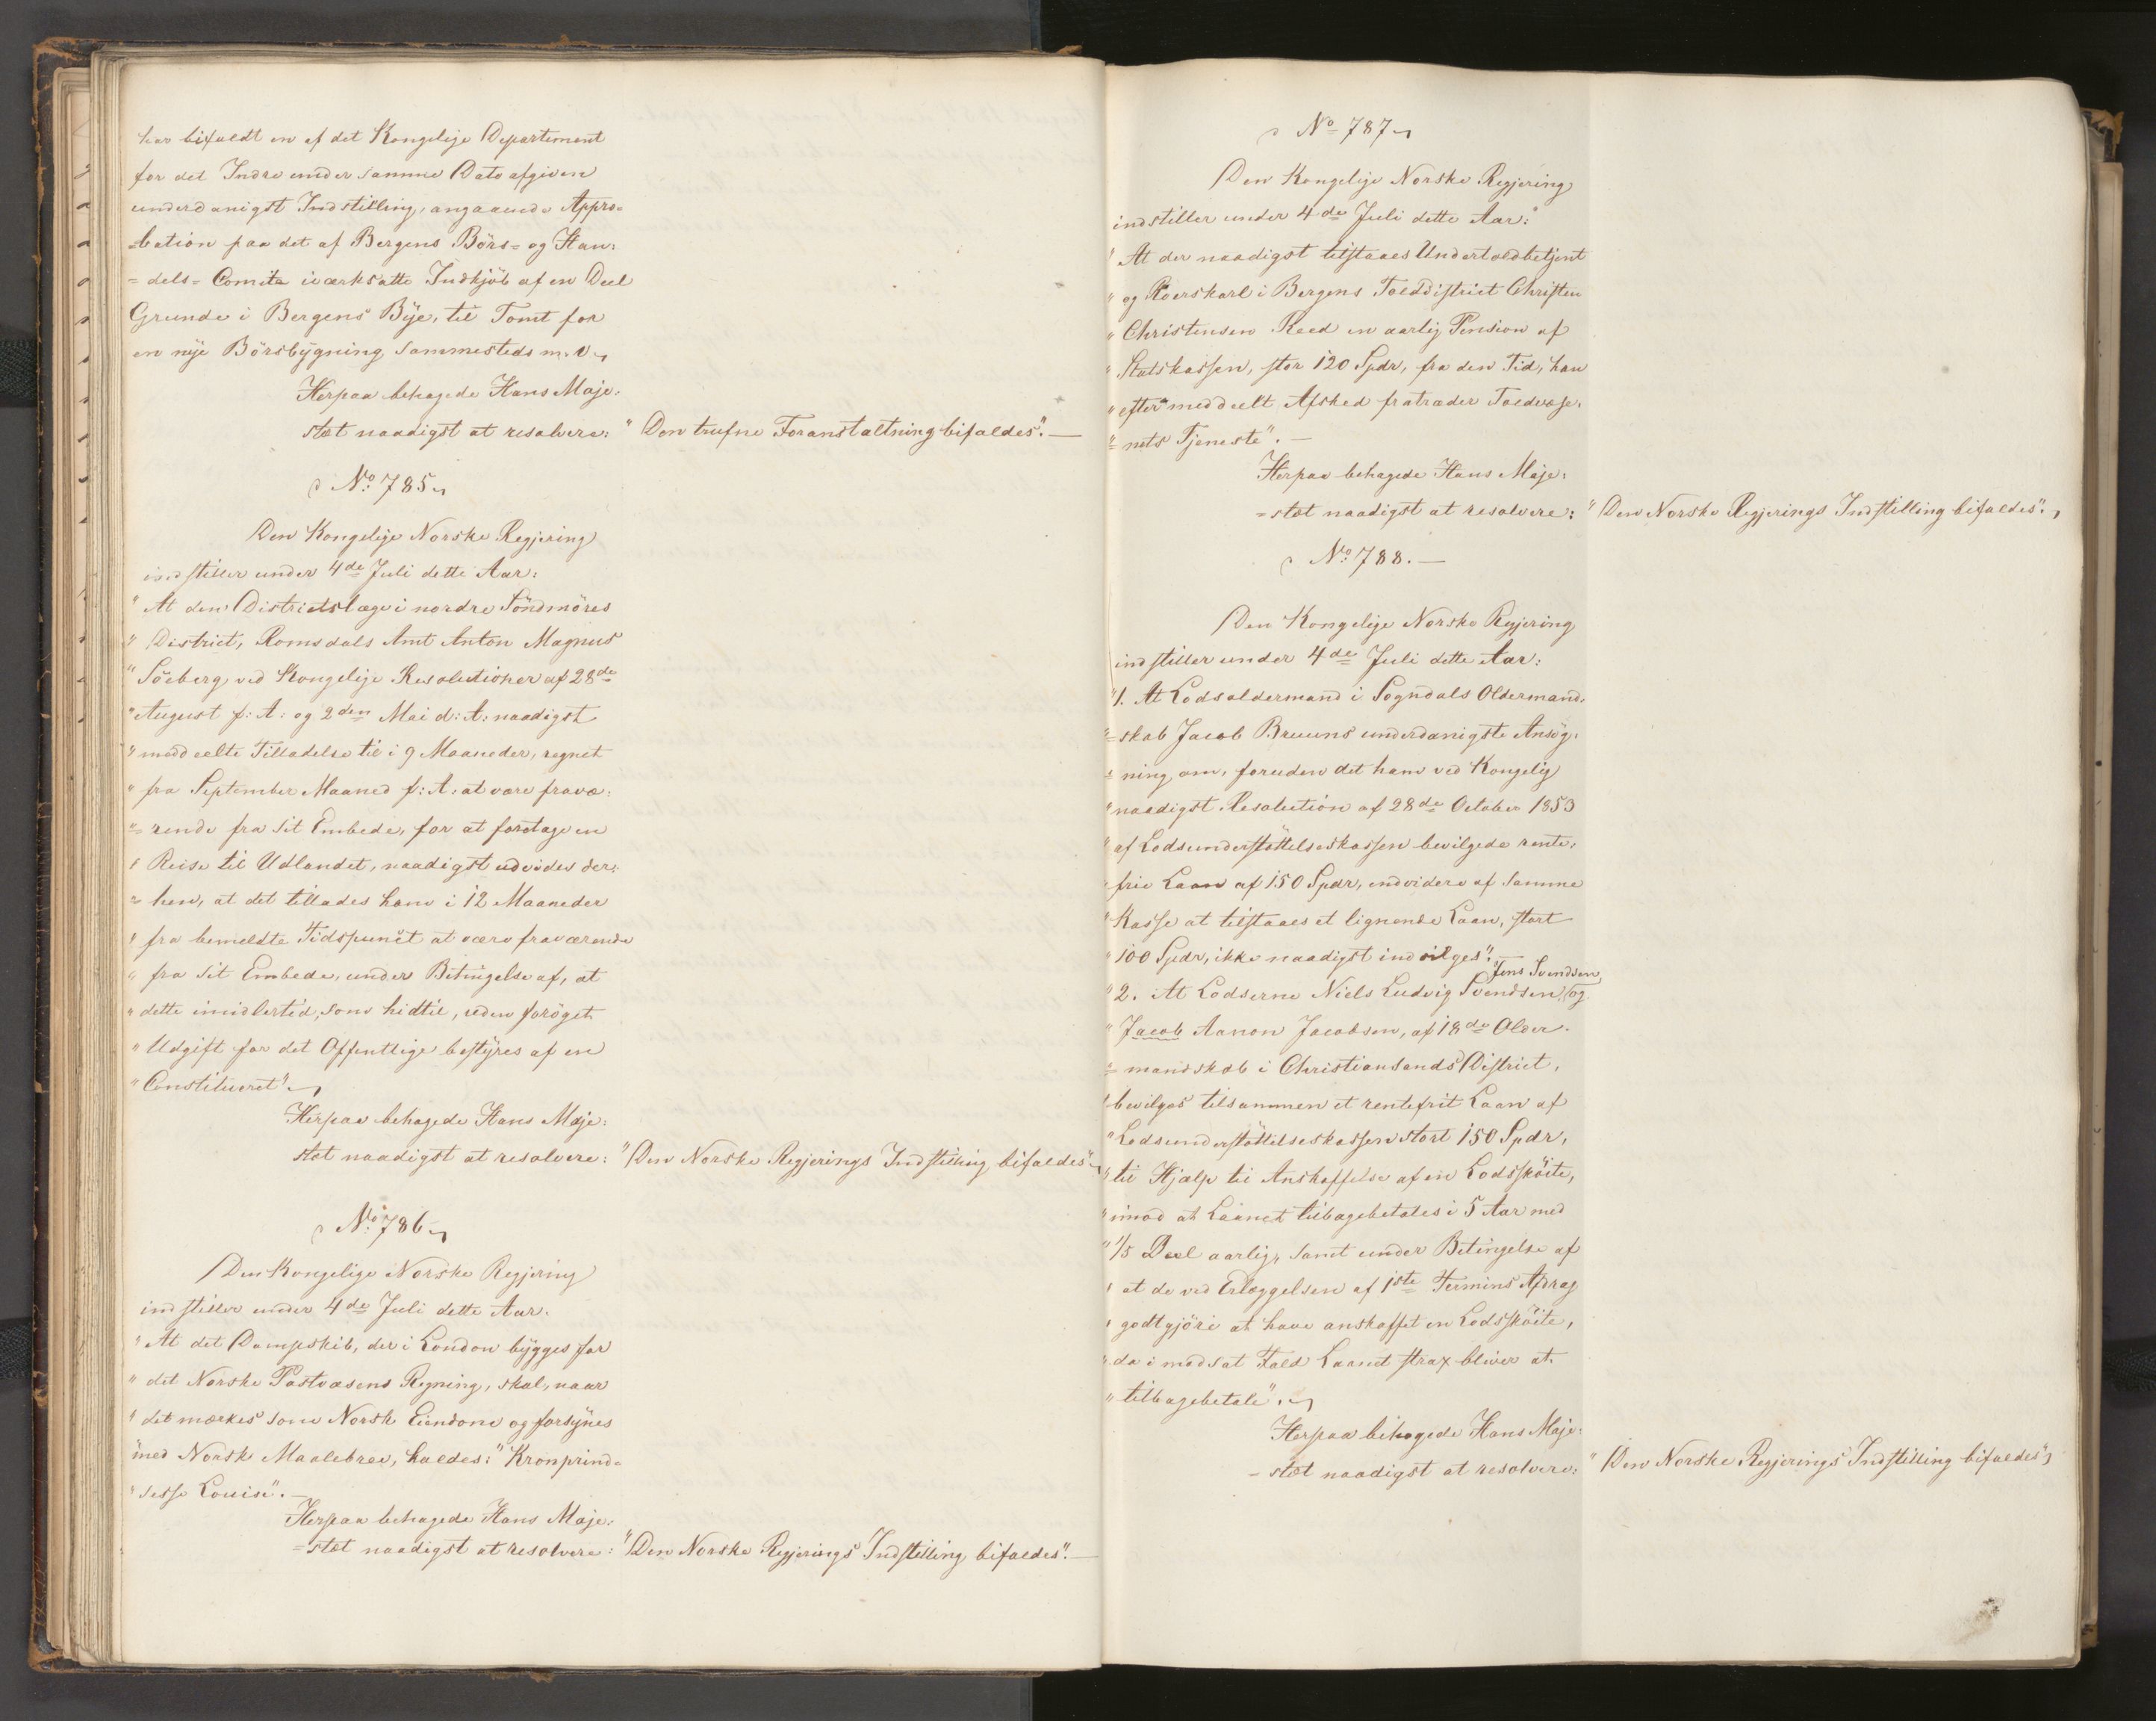 har bifaldt en af det Kongelige Departement
for det Indre under samme Dato afgiven
underdanigst Indstilling, angaaende Appro-
-bation paa det af Bergens Börs- og Han-
-dels-Comite iværksatte Indkjöb af en Deel
Grunde i Bergens Bÿe, til Tomt for
en nÿe Börsbÿgning sammesteds m. v.
Herpaa behagede Hans Maje-
stæt naadigst at resolvere: "Den trufne Foranstaltning bifaldes".—
No: 785.
Den Kongelige Norske Regjering
indstiller under 4de Juli dette Aar:
"At den Districtslæge i nordre Söndmöres
" District, Romsdals Amt Anton Magnus
" Söeberg ved Kongelige Resolutioner af 28de
" August f: A: og 2den Mai d: A: naadigst
" meddeelte Tilladelse til i 9 Maaneder, regnet
" fra September Maaned f: A: at være fravæ-
"= rende fra sit Embede, for at foretage en
" Reise til Udlandet, naadigst udvides der-
"= hen, at det tillades ham i 12 Maaneder
" fra bemeldte Tidspunct at være fraværende
" fra sit Embede, under Betingelse af, at
" dette imidlertid, som hidtil, uden foröget
" Udgift for det Offentlige bestÿres af en
" Constitueret".
Herpaa behagede Hans Maje-
stæt naadigst at resolvere: "Den Norske Regjerings Indstilling bifaldes".
No: 786.
Den Kongelige Norske Regjering
indstiller under 4de Juli dette Aar:
" At det Dampskib, der i London bÿgges for
" det Norske Postvæsens Regning, skal, naar
" det mærkes som Norsk Eiendom og forsÿnes
" med Norsk Maalebrev, kaldes: "Kronprind-
" sesse Louise".—
Herpaa behagede Hans Maje-
=stæt naadigst at resolvere: "Den Norske Regjerings Indstilling bifaldes".—
No 787.
Den Kongelige Norske Regjering
indstiller under 4de Juli dette Aar:
" At der naadigst tilstaaes Undertoldbetjent
" og Roerskarl i Bergens Tolddistrict Christen
" Christensen Reed en aarlig Pension af
" Statskassen, stor 120 Spdr, fra den Tid, han
" efter meddeelt Afsked fratræder Toldvæse-
"= nets Tjeneste".—
Herpaa behagede Hans Maje-
=stæt naadigst at resolvere: "Den Norske Regjerings Indstilling bifaldes".
No: 788.—
Den Kongelige Norske Regjering
indstiller under 4de Juli dette Aar:
"1. At Lodsoldermand i Sogndals Oldermand-
"=skab Jacob Bruuns underdanigste Ansög-
"= ning om, foruden det ham ved Kongelig
" naadigst Resolution af 28de October 1853
" af Lodsunderstöttelseskassen bevilgede rente-
" frie Laan af 150 Spdr, endvidere af samme
" Kasse at tilstaaes et lignende Laan, stort
" 100 Spdr, ikke naadigst indvilges".
"2. At Lodserne Niels Ludvig Svendsen, Jens Svendsen og
" Jacob Aanon Jacobsen, af 18de Older-
"= mandskab i Christiansands District,
" bevilges tilsammen et rentefrit Laan af
" Lodsunderstöttelseskassen stort 150 Spdr,
" til Hjælp til Anskaffelse af en Lodsskö̈ite,
" imod at Laanet tilbagebetales i 5 Aar med
" 1/5 Deel aarlig, samt under Betingelse af
" at de ved Erlæggelsen af 1ste Termins Afdrag
" godtgjöre at have anskaffet en Lodssköite,
" da i modsat Fald Laanet strax bliver at
" tilbagebetale".
Herpaa behagede Hans Maje-
=stæt naadigst at resolvere: "Den Norske Regjerings Indstilling bifaldes".